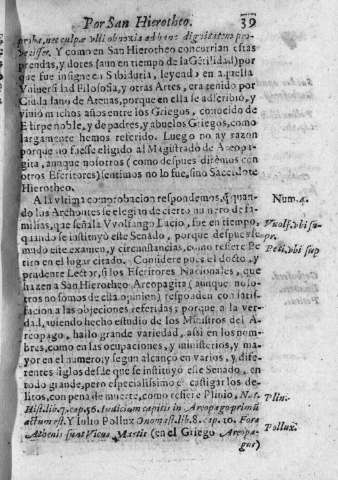 Por San Hierotheo. 39
priba, nec culpæ vlli obnoxia ad hanc dignitatem pro-
vexisse. Y como en San Hierotheo concurrian estas
prendas, y dotes (aun en tiempo de la Gẽtilidad) por
que fue insigne en Sibiduria, leyendo en aquella
Vniuersidad Filosofia, y otras Artes, era tenido por
Ciudadano de Atenas, porque en ella se adscribió, y
viuió muchos años entre los Griegos, conocido de
Estirpe noble, y de padres, y abuelos Griegos, como
largamente hemos referido. Luego no ay razon
porque no fuesse eligido al Magistrado de Areopa-
gita, aunque nosotros (como despues dirèmos con
otros Escritores) sentimos no lo fue, sino Sacerdote
Hierotheo.
A la vltima comprobacion respondemos, q̃ quan- Num. 4.
do los Archontes se elegian de cierto numero de fa-
milias, que señala Vvolfango Lacio, fue en tiempo, Vvolf. vbi su-
quando se instituyó este Senado, porque despues se pr.
mudo este examen, y circunstancias, como refiere Pe Peti. vbi sup
tito en el lugar citado. Considere pues el docto, y
prudente Lector, si los Escritores Nacionales, que
hazen a San Hierotheo Areopagita (aunque noso-
tros no somos de esta opinion) responden con satis-
facion a las objeciones referidas; porque a la ver-
dad, auiendo hecho estudio de los Ministros del Are-
opago, hallo grande variedad, assi en los nom-
bres, como en las ocupaciones, y ministerios, y ma-
yor en el numero; y segun alcançó en varios, y dife-
rentes siglos desde que se instituyó este Senado, en
todo grande, pero especialissimo en castigar los de-
litos, con pena de muerte, como refiere Plinio, Nat. Plin.
Hist. lib. 7. cap. 56. Iudicium capitis in Areopago primũ
actum est. Y Iulio Pollux Onomast. lib. 8. cap. 10. Fora Pollux.
Athenis sunt Vicus Martis (en el Griego Areopa-
gus)